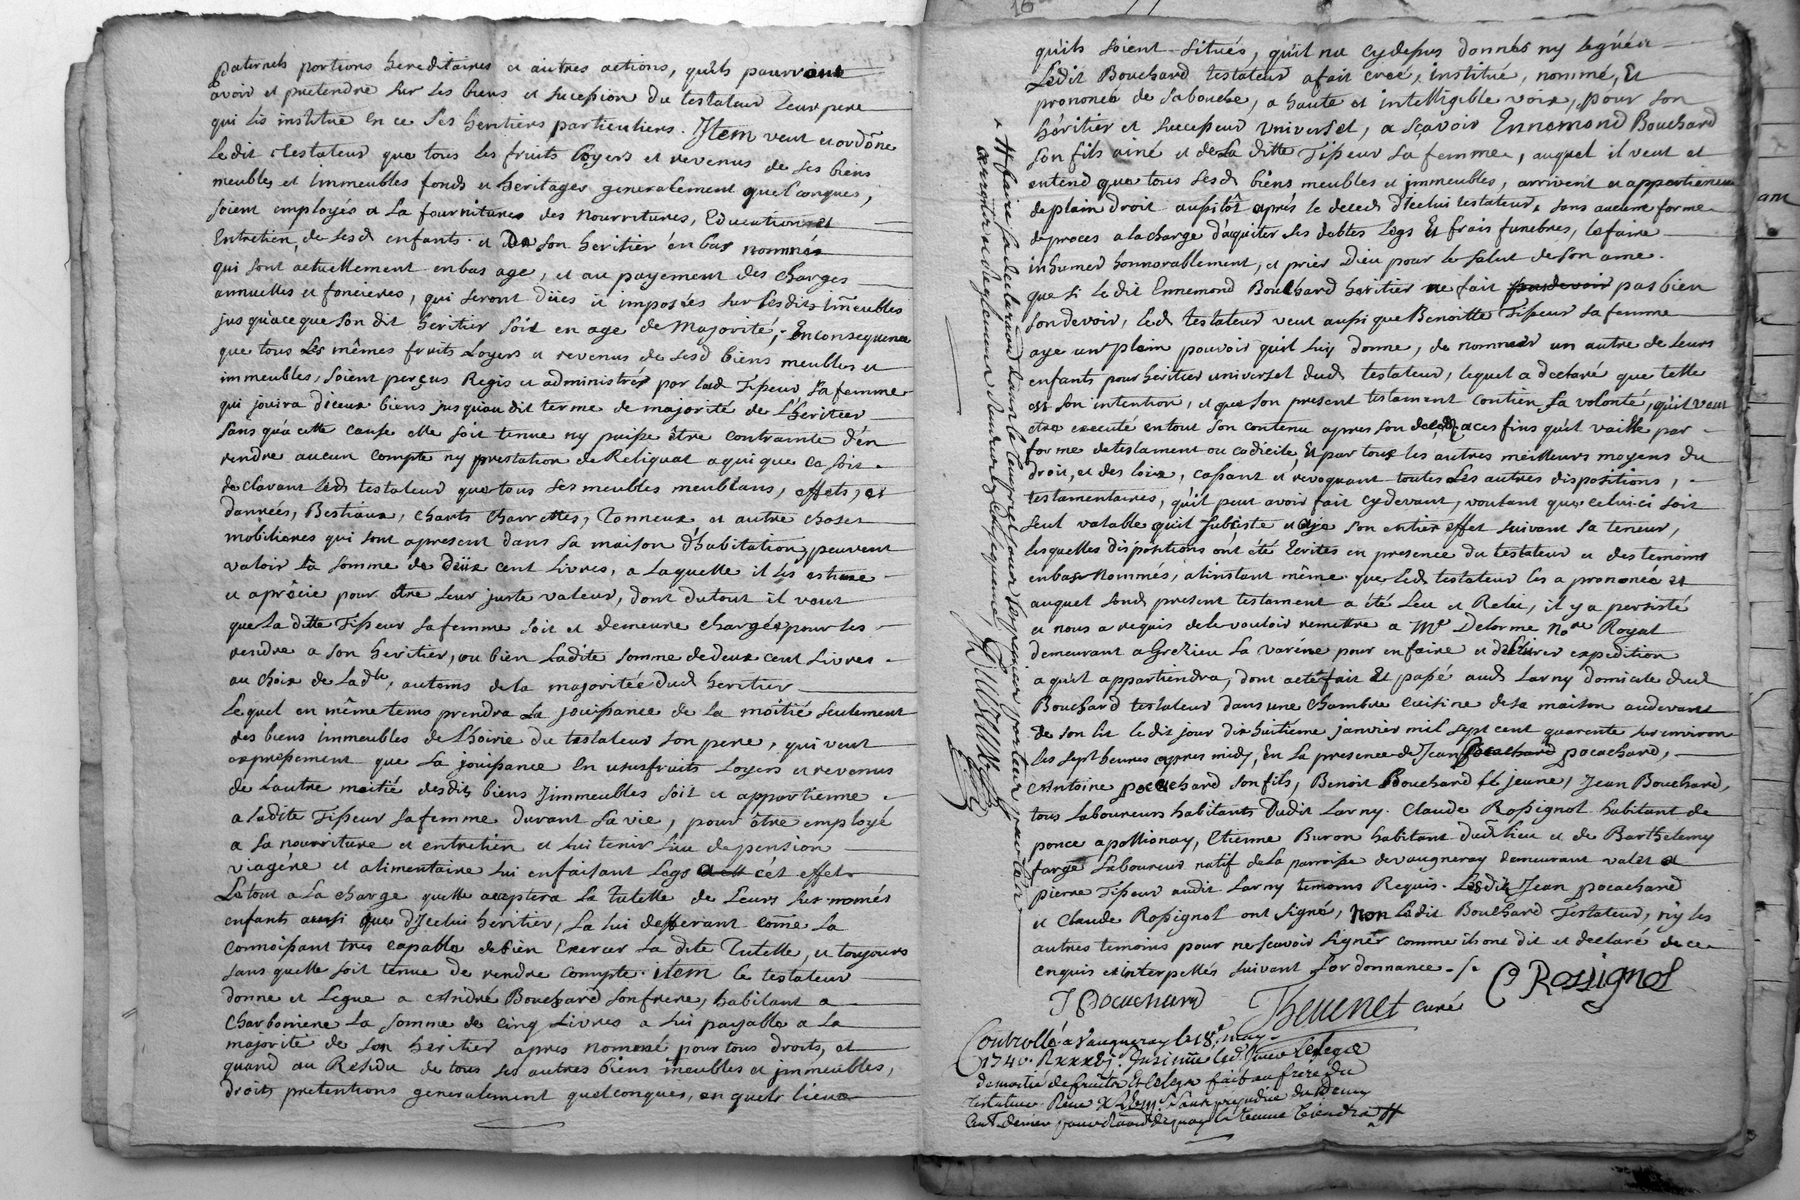 paternels portions hereditaires et autres actions, quils pourroient
avoir et pretendre sur les biens et succession du testateur leur pere
qui les institue en ce ses heritiers particuliers. Item veut et ordône
ledit testateur que tous les fruits loyers et revenus de ses biens
meubles et immeubles fonds et heritages generalement quelconques,
soient employés a la fourniture des nourritures, Education et
Entretien de sesd enfants et de son heritier en bas nommés
qui sont actuellement en bas age, et au payement des charges
annuelles et foncieres, qui seront dües et imposées sur lesdits imeubles
jusqu'a ce que son dit heritier soit en age de majorité; En consequence
que tous les mêmes fruits loyers et revenus de sesd biens meubles et
immeubles, soient perçus Regis et administrés par lad Tisseur sa femme
qui jouira d'iceux biens jusqu'au dit terme de majorité de l'heritier
sans qu'a cette cause elle soit tenue ny puisse être contrainte d'en
rendre aucun compte ny prestation de Reliquat a qui que ce soit
declarant led testateur que tous ses meubles meublans, effets, et
danrées, Bestiaux, chariots charrettes, Tonneaux et autre choses
mobiliaires qui sont apresent dans sa maison d'habitation peuvent
valoir la somme de deux cent livres, a laquelle il les estime
et aprécie pour être leur juste valeur, dont du tout il veut
que la ditte Tisseur sa femme soit et demeure chargée pour les
rendre a son heritier, ou bien ladite somme de deux cent livres
au choix de lad.te, au tems de la majoritée dud heritier
Lequel en même tems prendra la jouissance de la moitié seulement
des biens immeubles de l'hoirie du testateur son pere, qui veut
expressement que la jouissance en ususfruits loyers et revenus
de l'autre moitié desdits biens immeubles soit et appartienne
a ladite Tisseur sa femme durant sa vie, pour être employé
a sa nourriture et entretien et lui tenir lieu de pension
viagére et alimentaire lui en faisant legs a cét effet
Le tout a la charge quelle acceptera la tutelle de leurs sus només
enfants aussi que d'Icelui héritier, la lui defferant côme la
connoissant tres capable de bien Exercer la dite Tutelle, et toujours
sans quelle soit tenue de rendre compte. item le testateur
donne et legue a André Bouchard son frere, habitant a
Charboniere la somme de cinq livres a lui payable a la
majorité de son heritier apres nommé pour tous droits, et
quand au Residu de tous ses autres biens meubles et immeubles,
droits pretentions generalement quelconques, en quels lieux
qu'ils soient situés, qu'il na cydessus donnés ny legués
Ledit Bouchard testateur a fait creé, institué, nommé, Et
prononcé de sa bouche, a haute et intelligible voix, pour son
héritier et successeur universel, a sçavoir Ennemond Bouchard
son fils ainé et de la ditte Tisseur sa femme, auquel il veut et
entend que tous sesd biens meubles et immeubles, arrivent et appartienent
de plain droit aussitôt aprés le deced d'Icelui testateur, sans aucune forme
de proces a la charge d'aquiter ses debtes legs Et frais funebres, le faire
inhumer honnorablement, et prier Dieu pour le salut de son ame.
que si le dit Ennemond Bouchard heritier ne fait pas bien
son devoir, led testateur veut aussi que Benoitte Tisseur sa femme
aye un plein pouvoir qu'il luy donne, de nommer un autre de leurs
enfants pour heritier universel dud testateur, lequel a declaré que telle
est son intention, et que son present testament contien sa volonté, qu'il veut
etre executé en tout son contenu apres son deced, a ces fins qu'il vaille par
forme de testament ou codicile, Et par tous les autres meilleurs moyens du
droit, et des loix, cassant et revoquant toutes les autres dispositions,
testamentaires, qu'il peut avoir fait cydevant, voulant que celui-ci soit
seul valable qu'il subsiste et aye son entier effet suivant sa teneur,
lesquelles dispositions ont été Ecrites en presence du testateur et des temoins
en bas Nommés, a l'instant même que led testateur les a prononcé et
auquel sond present testament a été Leu et Releu, il y a persisté
et nous a requis de le vouloir remettre a Me Delorme no.re Royal
demeurant a Grezieu la Varéne pour en faire et délivrer expedition
a qui il appartiendra, dont acte fait Et passé aud Larny domicile dud
Bouchard testateur dans une chambre cuisine de sa maison au devant
de son lit le dit jour dix huitième janvier mil sept cent quarente sur environ
les sept heures apres midy, En la presence de Jean pocachard,
Antoine pocachard son fils, Benoit Bouchard le jeune, Jean Bouchard,
tous laboureurs habitants dudit Larny. Claude Rossignol habitant de
ponce apollionay, Etienne Buron habitant dud lieu et de Barthelemy
fargé laboureur natif de la parroisse de vaugneray demeurant valet a
pierre Tisseur audit Larny temoins Requis. Lesdits Jean pocachard
et Claude Rossignol ont signé, non ledit Bouchard testateur, n'y les
autres temoins pour ne scavoir signer comme ils ont dit et declaré de ce
enquis et interpellés suivant l'ordonnance.
J Pocachard Thevenet curé C Rossignol
Controllé a Vaugneray le 18e may
1740.
de moitié de fruits Et le legs fait au frere du
testateur. sans prejudice du